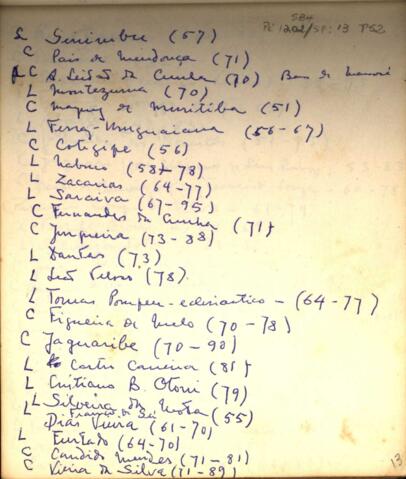 584
Pi 1202/SP: 13 P52
L Sinimbu (57)
C Pais de Mendonça (71)
C A. Leitão da Cunha (70) Barão de Mamoré
L Montezuma (70)
C Marquez de Muritiba (51)
L Ferraz-Uruguaiana (56-67)
C Cotegipe (56)
L Nabuco (58-78)
L Zacarias (64-77)
L Saraiva (67-95)
C Fernandes da Cunha (71)
C Junqueira (73-88)
L Dantas (73)
L Leão Veloso (78)
L Tomas Pompeu-eclesiástico - (64-77)
C Figueira de Melo (70-78)
C Jaguaribe (70-90)
L Castro Carreira (81)
L Cristiano B. Otoni (79)
L Silveira da Mota (55)
L Francisco de Sá
L Dias Vieira (61-70)
L Furtado (64-70)
C Candido Mendes (71-81)
C Vieira da Silva (71-89)
13